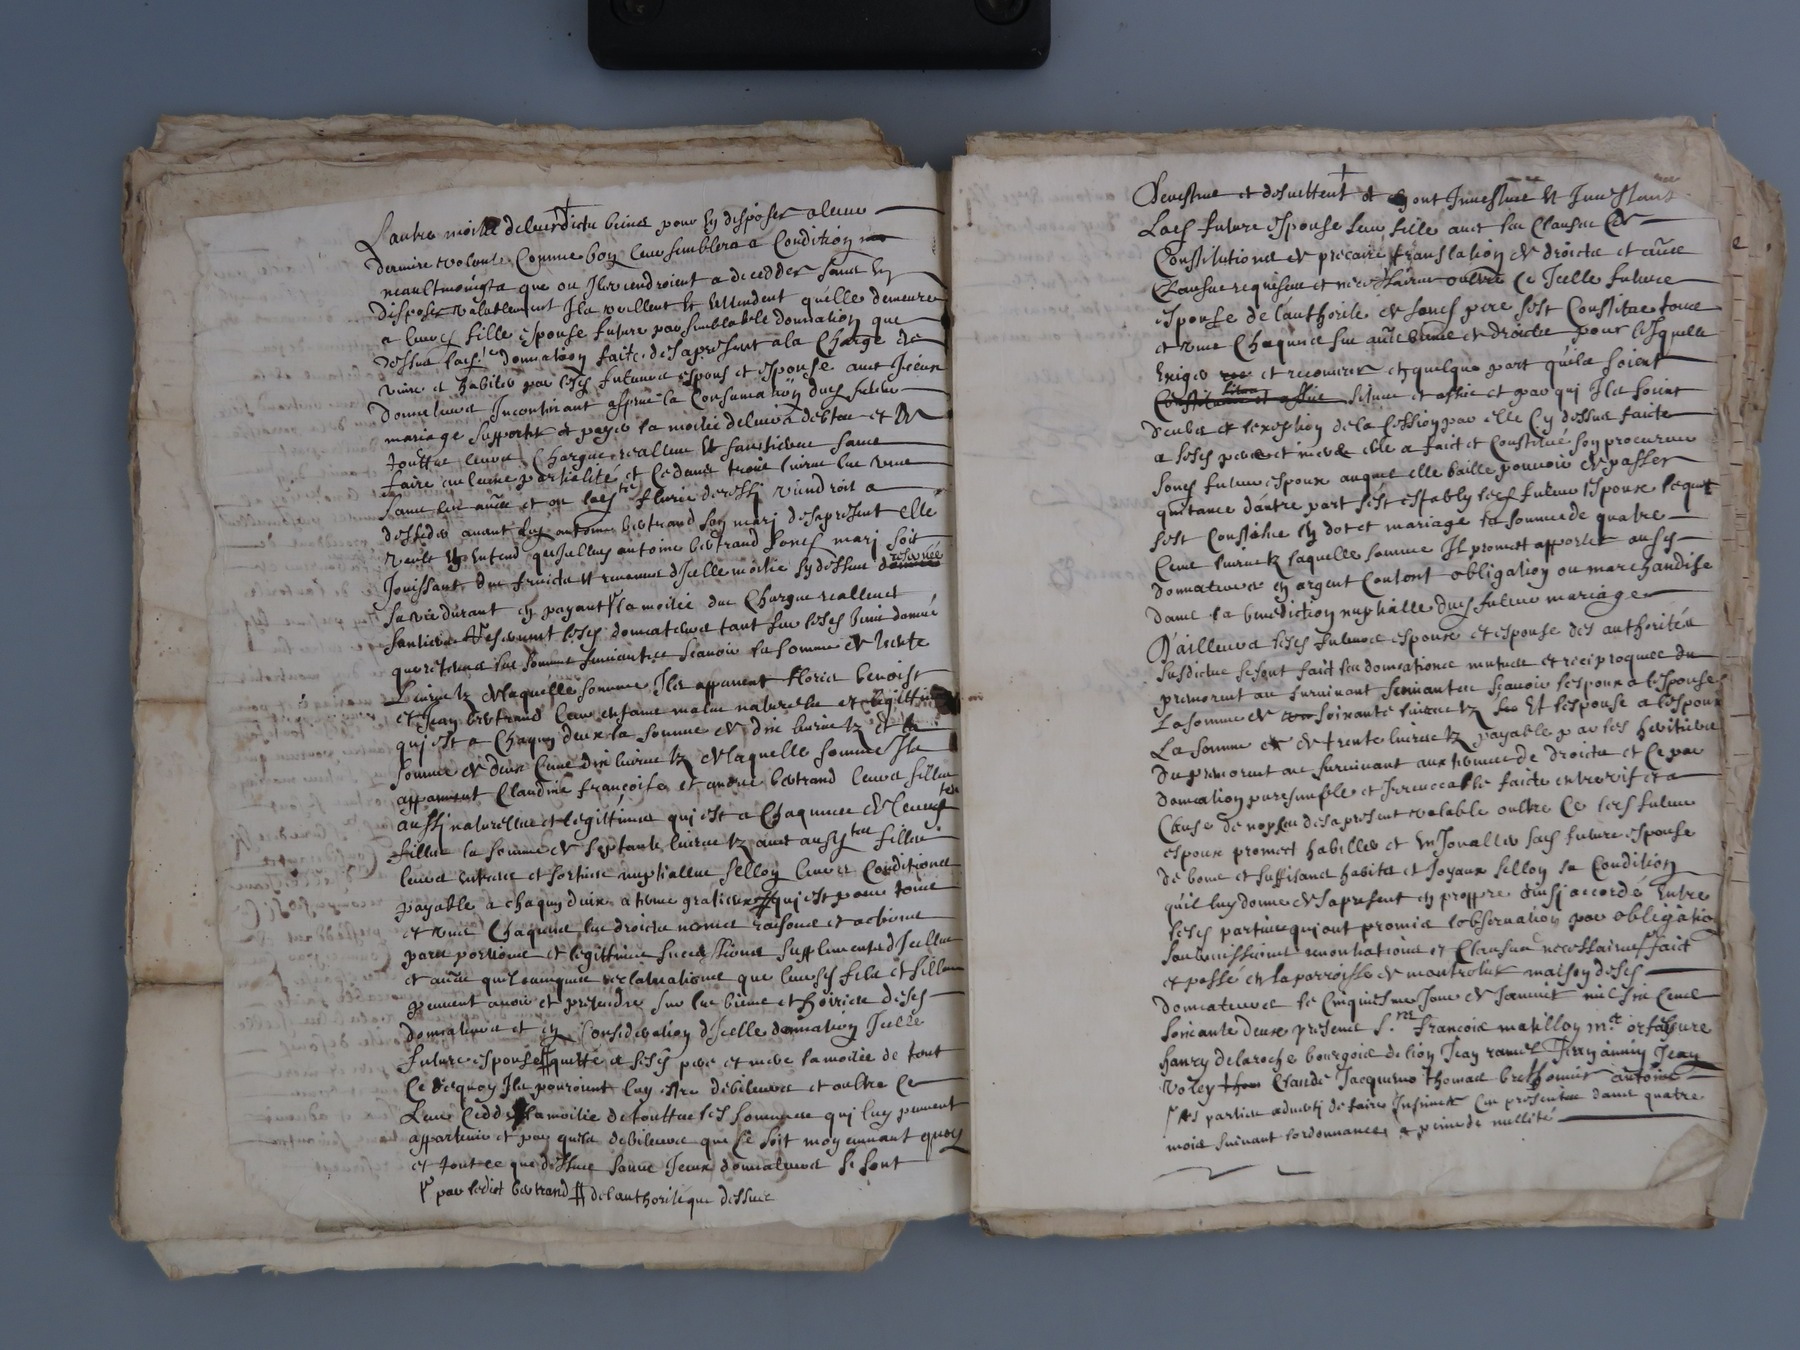 Lautre moitié de leursdictz biens pour en disposer a leur
derniere volonte Comme bon leur semblera a Condition
neaultmoingtz que ou Ilz viendroient a decedder sans en
disposer vallablement Ilz veullent et entendent qu'elle demeure
a leurd fille espouse future par semblable donnation que
dessus lad donnation faite des apresent a la Charge de
vivre et habiter par lesd futurs espoux et espouse avec Iceux
donateurs Incontinant apres la Consumation dud futur
mariage supporter et payer la moitié de leurs debtes et de
touttes leurs Charges realles et fonsieres sans
faire aulcune partialité et Cedans trois livres les unes
sans les aues et ou lad Florie deressy viendroit a
desseder avant led antoine bertrand son mary des apresent elle
veult et entend que Icelluy antoine bertrand sond mary soit
Jouissant des fruictz et revenus d'Icelle moitié cy dessus reservée
sa vie durant en payant la moitié des Charges realles et
fontieres Reservent lesd donnateurs tant sur lesd biens donnés
que retenus les sommes suivantes scavoir la somme de vingte
Livres tz de laquelle somme Ilz appanent Floris benoist
et Jean bertrand leurs enfans masles naturelz et legittimes
qui est a Chaqun deux la somme de dix livres tz et la
somme de deux Cens dix livres tz de laquelle somme Ilz
appannent Claudine francoise et andree bertrand leurs filles
aussy naturelles et legittimes qui est a Chaqunes de leursd
filles la somme de septante livres tz avec ausd filles
leurs entrees et sorties nuptialles sellon leurs Conditions
payable a chaqun deux a termes gratieux qui est pour toutes
et unes Chaqunes les droictz noms raisons et actions
partz portions et legittimes successions supplementz d'Icelles
et aues quelconques reclamations que leursd filz et filles
peuvent avoir et pretendre sur les biens et hoiries desd
donnateurs et en Consideration d'Icelle donnation Icelle
future espouse quitte a sesd pere et mere la moitié de tout
Ce dequoy Ilz pouroient luy estre debiteurs et oultre Ce
Leur Cedde la moitié de touttes les sommes qui luy peuvent
appartenir et par quilz debiteurs que Ce soit moyennant quoy
et tout ce que dessus sans Iceux donnateurs se sont
par ledict bertrand de l'authorite que dessus
Devestus et desvettent et sont Investus et Investant
Lad future espouse leur fille avec les Clauses de
Constitutions de precaire translation de droictz et aues
Clauses requises et necessaires oultre Ce Icelle future
espouse de l'authorité de sond pere sest Constitue tous
et uns Chaquns ses aues biens et droictz pour lesquelz
exiger et recouvrer en quelque part quilz soient
situes et assis et par qui Ilz soient
deubz et lexception de la Cession par elle Cy dessus faite
a sesd pere et mere elle a faict et Constitué son procureur
sond futur espoux auquel elle baille pouvoir de passer
quitance d'autre part sest establly led futur espoux lequel
sest Constitue en dot et mariage la somme de quatre
Cens livres tz laquelle somme Il promet apporter ausd
donnateurs en argent Contant obligation ou marchandise
dans la benediction nuptialle dud futur mariage
D'ailleurs lesd futurs espoux et espouse des authorités
susdictes se sont faict les donnations mutuelles et reciproques du
premorant au survivant suivantes scavoir lespoux a lespouse
La somme de soixante livres tz Et lespouse a lespoux
La somme de trente livres tz payable par les heritiers
du premorant au survivant aux termes de droictz et Ce par
donnation pure simple et Irrevocable faicte entre vifz et a
Cause de nopces des apresent valable oultre Ce led futur
espoux promect habiller et enJoualler lad future espouse
de bons et suffisans habitz et Joyaux sellon sa Condition
qu'il luy donne des apresent en proppre ainsi accordé entre
lesd parties qui ont promis lobservation par obligation
soubmissions renontiations et Clauses necessaires fait
et passé en la parroisse de montrotier maison desd
donnateurs le Cinquiesme Jour de Janvier mil six Cens
soixante deux presens Sr francois matillon me orfebvre
hanry delaroche bourgois de lion Jean ramel Jean
voley Claude Jacquemo thomas brethonnier antoine
Les parties adverti de faire Insinuer Ces presentes dans quatre
mois suivant lordonnance a peine de nullité